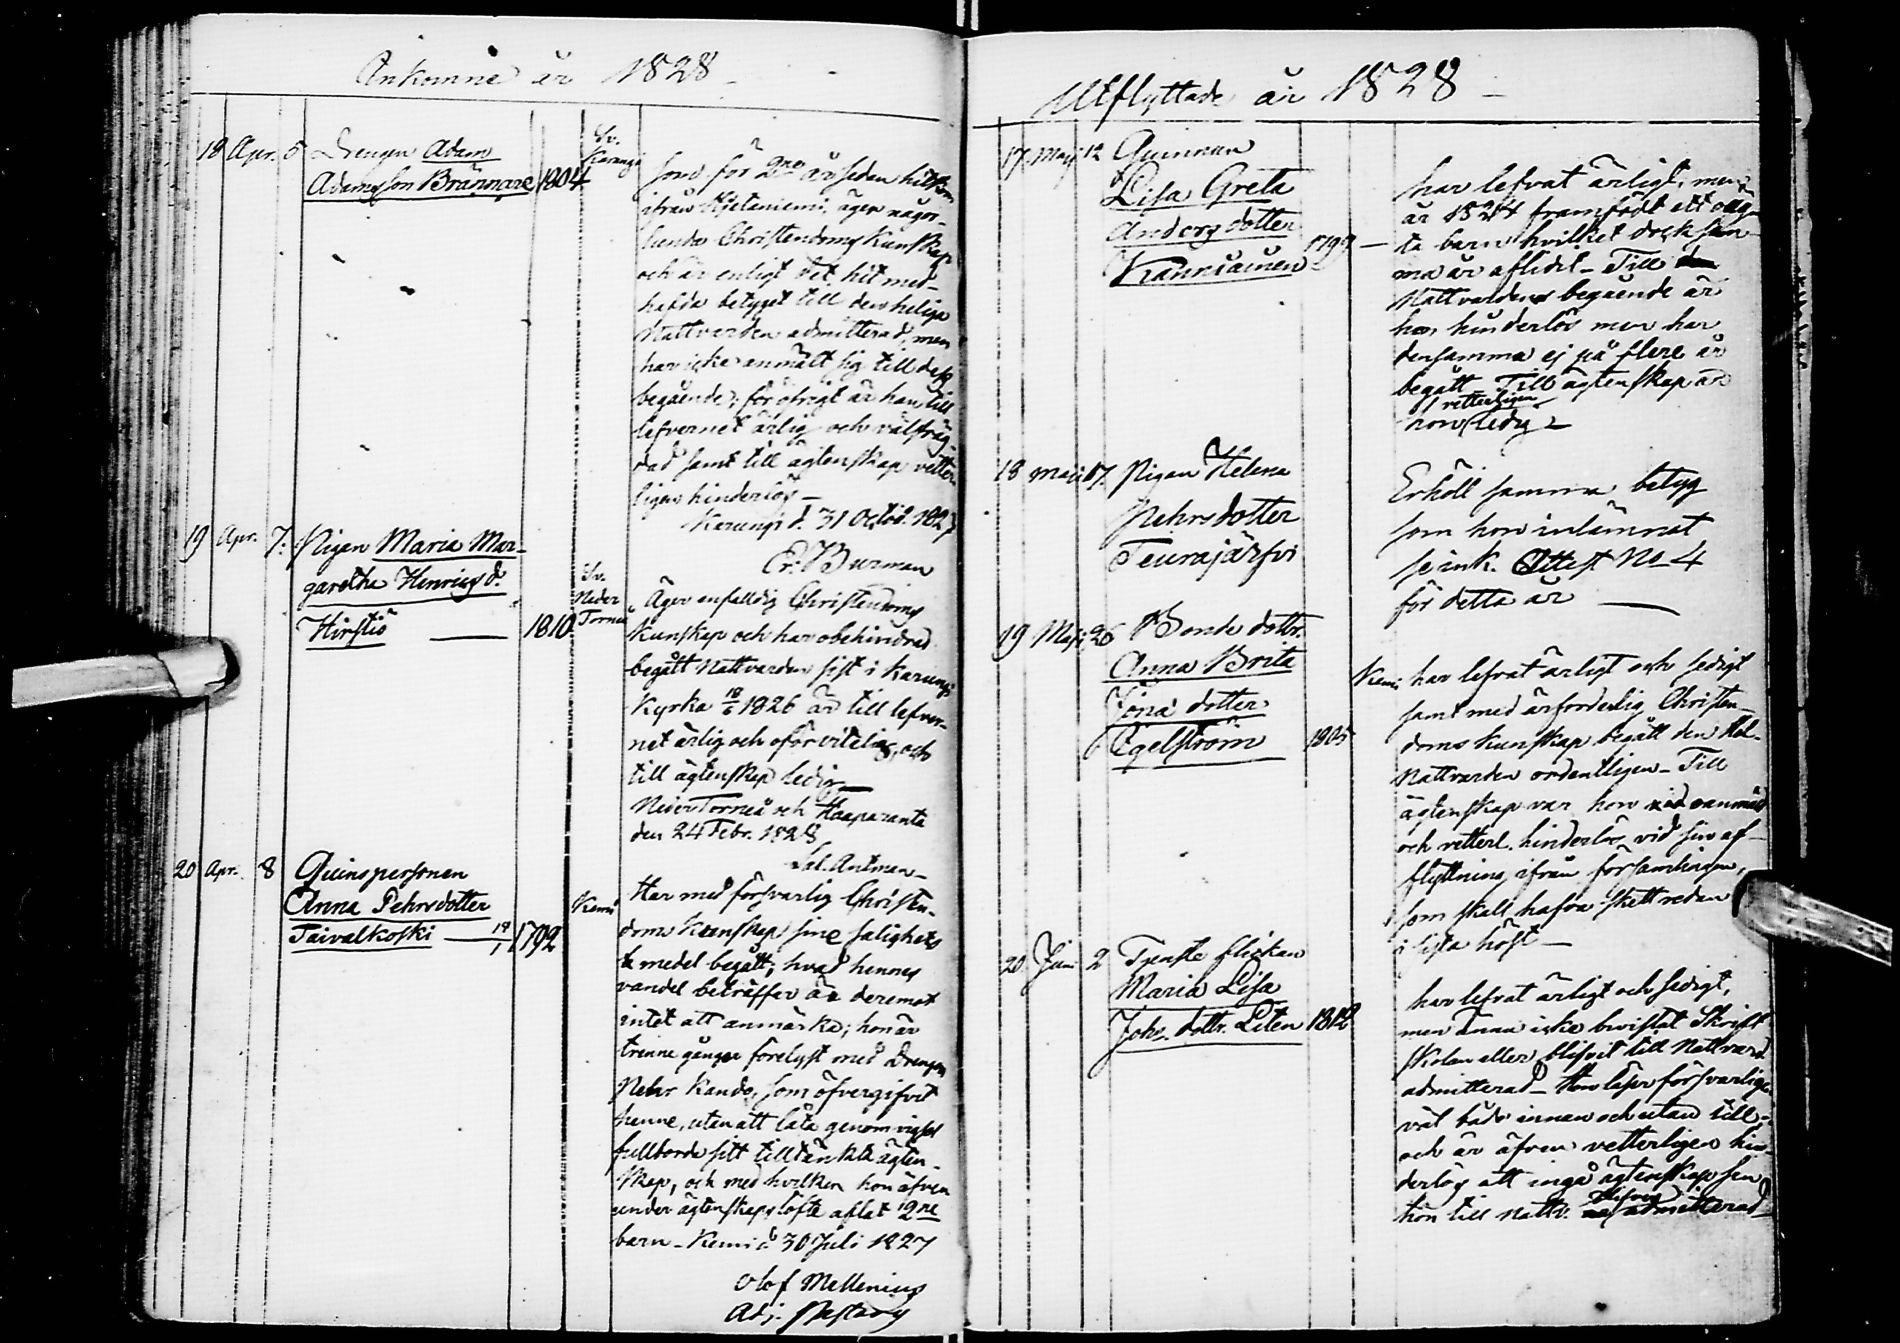 Inkomne år 1828
18 Apr. 5 Drengen Adam
Adamsson Brännare 1804
Sv.
Karungi
som för 2ne år sedan hitkom
ifrån Hjetaniemi, äger någor-
lunda Christendoms Kunskap
och är enligt det hit med-
hafda betyget till den heliga
Nattvarden admitterad, men
har icke anmält sig till dess
begående; för öfrigt är han till
lefvernet ärlig och välfräg-
dad samt till ägtenskap vetter-
ligen hinderlös –
Karungi d. 31 Octob. 1827
Er. Burman
19 Apr. 7. Pigan Maria Mar-
garetha Henrics d.
Hirstiö — 1810
Sv.
Neder
Torneå
Äger enfaldig Christendoms
Kunskap och har obehindrad
begått Nattvarden sist i Karungi
Kyrka 18/6 1826 är till lefver-
net ärlig och oförvitelig, och
till ägtenskap ledig –
Neder Torneå och Haaparanta
den 24 Febr. 1828
Sal. Antman –
20 Apr. 8 Qvinspersonen
Anna Pehrsdotter
Taivalkoski — 18/1 1792
Kemi
Har med försvarlig Christen-
doms Kunskap sine salighets
medel begått; hvad hennes
vandel beträffer är deremot
intet att anmärka; hon är
trenne gånger förelyst med Drengen
Pehr Kando, som öfvergifvit
henne, utan att låta genom vigsel
fullborda sitt tilltänkta ägten-
skap, och med hvilken hon äfven
under ägtenskaps löfte aflat 2ne
barn – Kemi d. 30 Juli 1827
Olof Mellenius
Adj. Pastoris
Utflyttade år 1828 –
17. Maji 12 Qvinnan
Lisa Greta
Anders dotter
Kanniainen 1797 –
har lefvat ärligt, men
år 1824 framfödt ett oäg-
ta barn hvilket dock sam-
ma år aflidit – Till
Nattvardens begående är
hon hinderlös men har
densamma ej på flere år
begått – Till ägtenskap är
hon vetterligen ledig –
18 Maji 17. Pigan Helena
Pehrsdotter
Teurajärfvi
Erhöll samma betyg
som hon inlämnat
se ink. Attest No 4
för detta år —
19 Maji 26 Bonde dottr.
Anna Brita
Jöns dotter
Egelström 1805
Kemi
har lefvat ärligt och sedigt
samt med ärforderlig Christen-
doms Kunskap begått den Hel.
Nattvarden ordentligen – Till
ägtenskap var hon oanmäld
och vetterl. hinderlös vid sin af-
flyttning ifrån församlingen,
som skall hafva skett redan
i sista höst –
20 Juni 2 Tjenste flickan
Maria Lisa
Johs. dottr. Liten 1812
har lefvat ärligt och sedigt,
men ännu icke bevistat Skrift
skolan eller blifvit till Nattvard
admitterad – Hon läser försvarligen
väl både innan och utan till –
och är äfven vetterligen hin-
derlös att ingå ägtenskap sen
hon till nattv. blifvit admitterad –